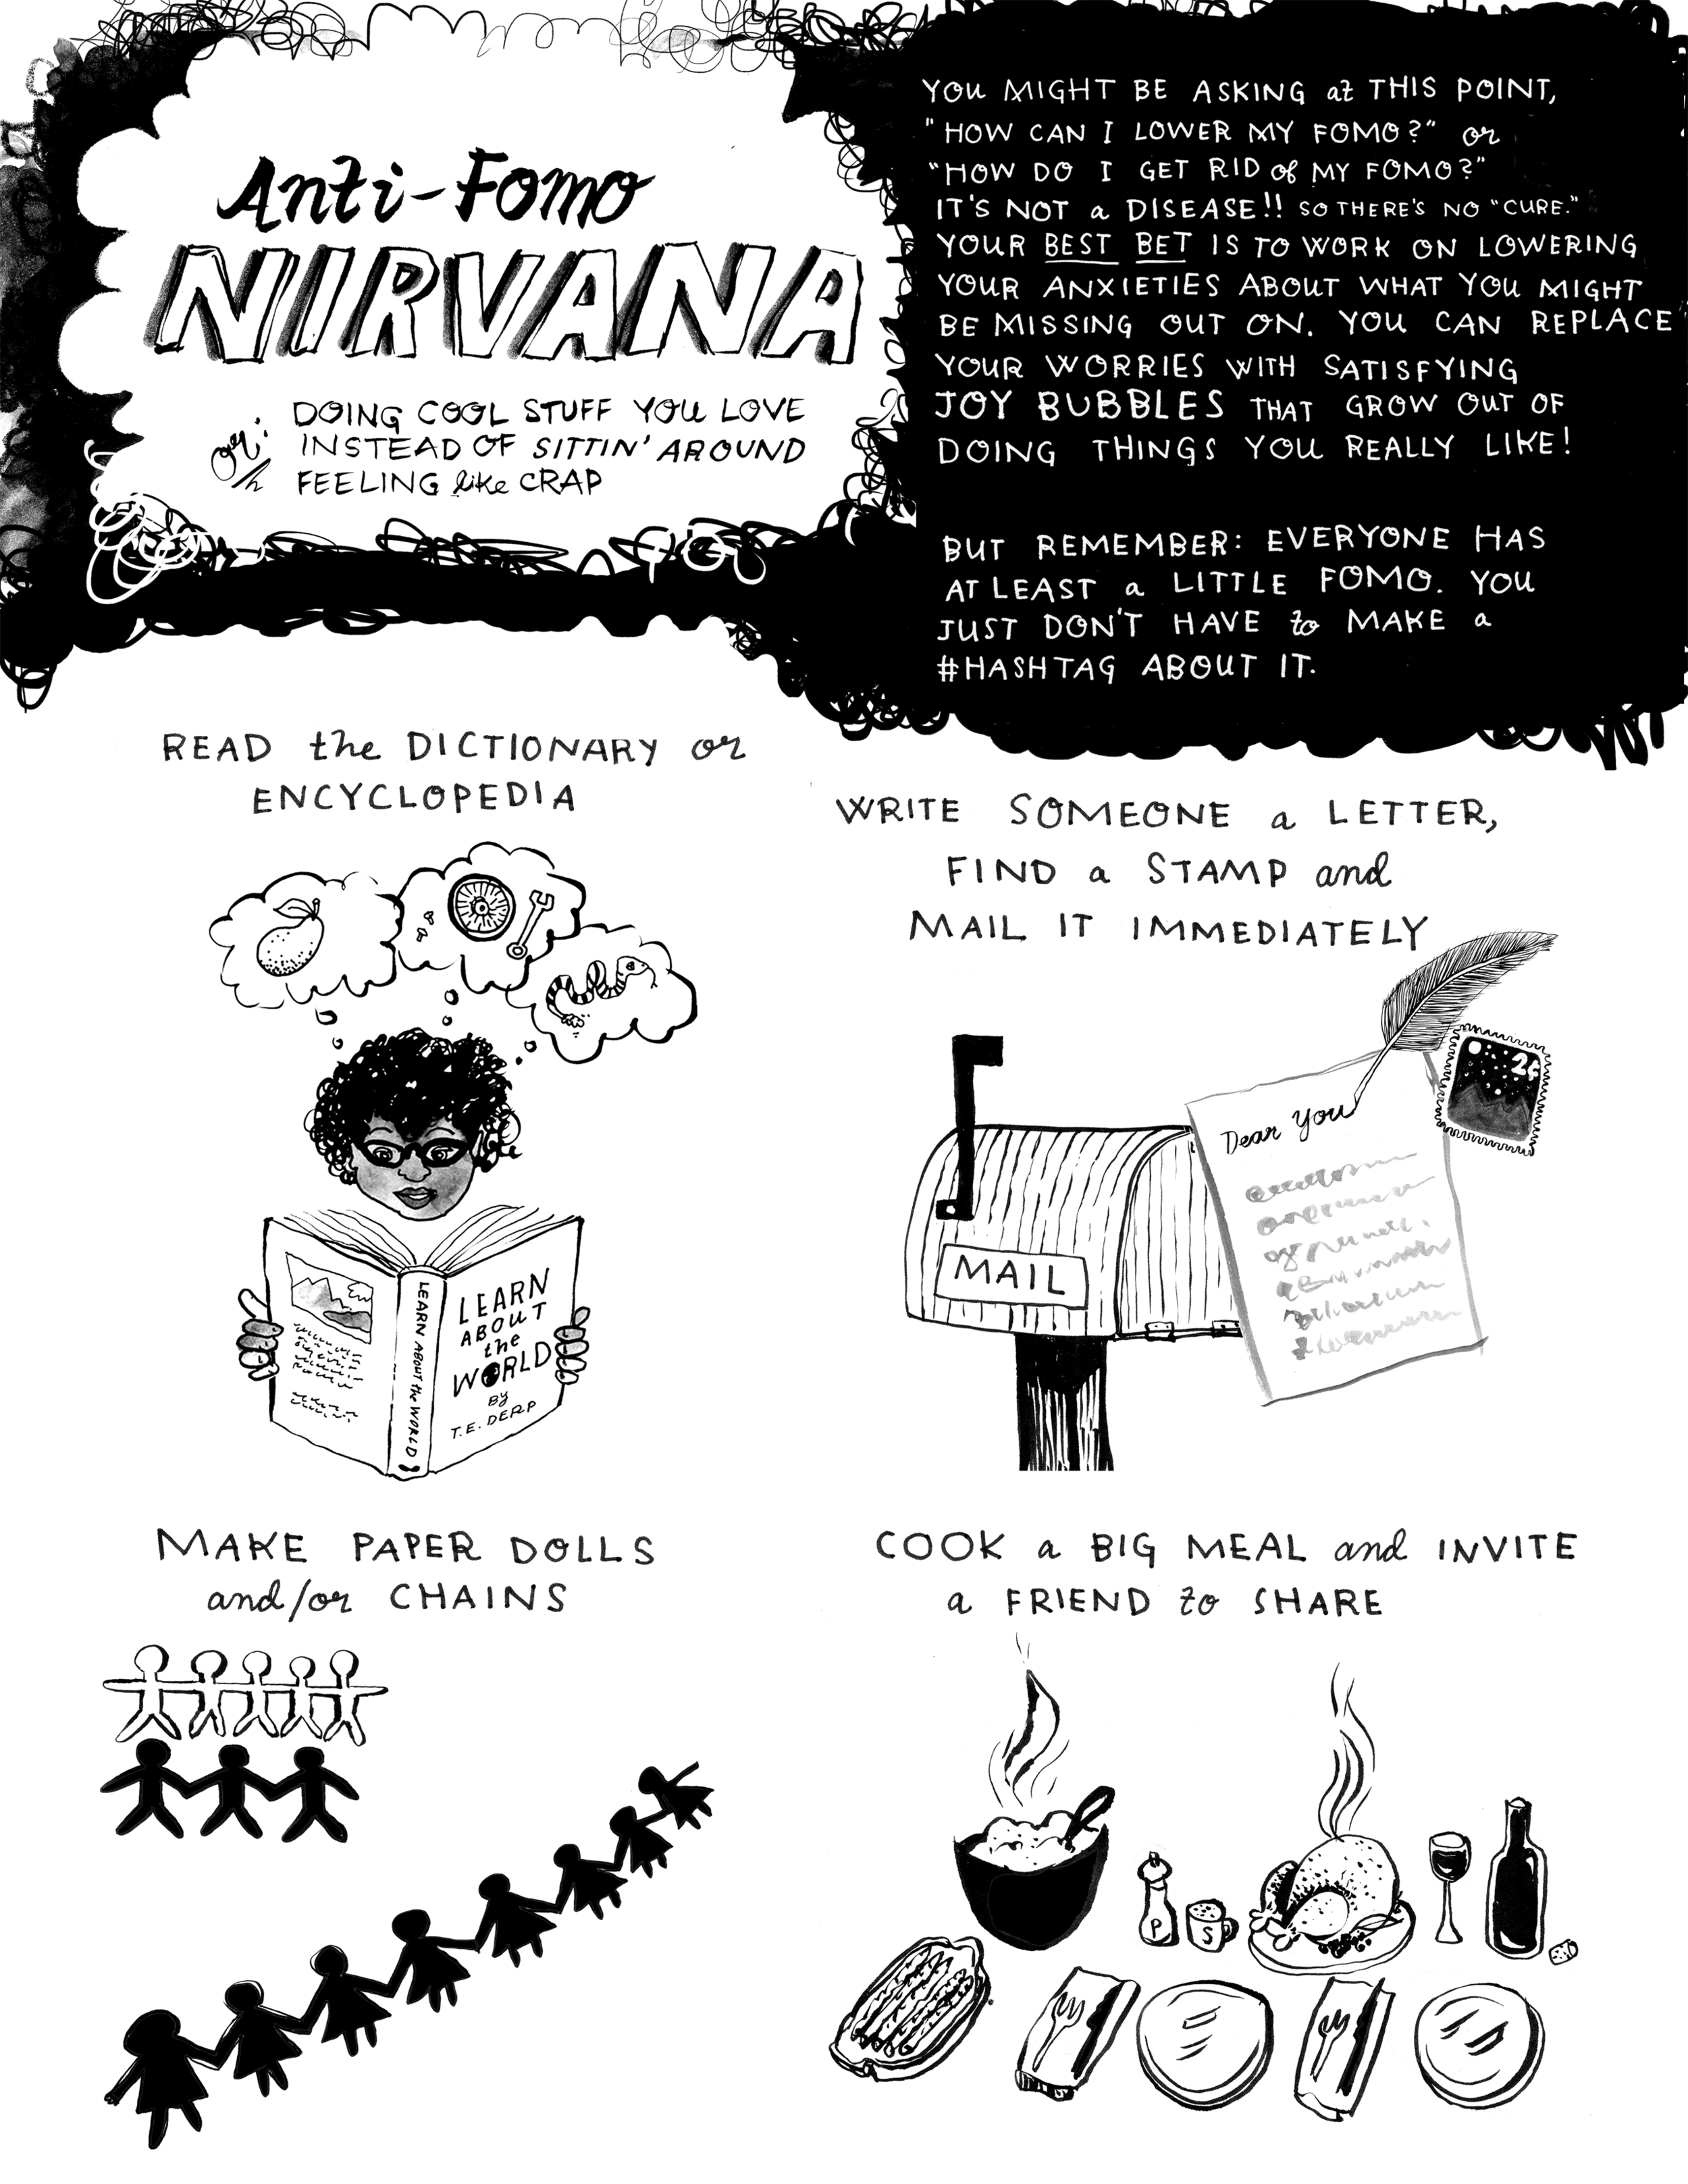 Anti-Fomo
NIRVANA
or:
DOING COOL STUFF YOU LOVE
INSTEAD OF SITTIN' AROUND
FEELING like CRAP
YOU MIGHT BE ASKING at THIS POINT,
"HOW CAN I LOWER MY FOMO?" or
"HOW DO I GET RID of MY FOMO?"
IT'S NOT a DISEASE!! SO THERE'S NO "CURE."
YOUR BEST BET IS TO WORK ON LOWERING
YOUR ANXIETIES ABOUT WHAT YOU MIGHT
BE MISSING OUT ON. YOU CAN REPLACE
YOUR WORRIES WITH SATISFYING
JOY BUBBLES THAT GROW OUT OF
DOING THINGS YOU REALLY LIKE!
BUT REMEMBER: EVERYONE HAS
AT LEAST a LITTLE FOMO. YOU
JUST DON'T HAVE to MAKE a
#HASHTAG ABOUT IT.
READ the DICTIONARY or
ENCYCLOPEDIA
LEARN ABOUT the WORLD
LEARN
ABOUT
the
WORLD
BY
T.E. DERP
WRITE SOMEONE a LETTER,
FIND a STAMP and
MAIL IT IMMEDIATELY
2¢
Dear You
MAIL
MAKE PAPER DOLLS
and/or CHAINS
COOK a BIG MEAL and INVITE
a FRIEND to SHARE
P
S